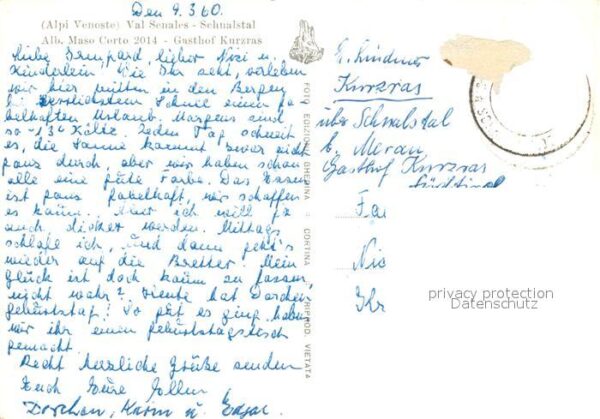 Den 9.3.60.
(Alpi Venoste) Val Senales - Schnalstal
Alb. Maso Corto 2014 - Gasthof Kurzras
Liebe, lieber Nizi u.
Kinderlein! Wie Ihr seht, verleben
wir hier mitten in den Bergen
bei herrlichstem Schnee einen fa
belhaften Urlaub. Morgens sind
so -13° Kälte. Jeden Tag schneit
es, die Sonne kommt zwar nicht
ganz durch, aber wir haben schon
alle eine gute Farbe. Das Essen
ist ganz fabelhaft, wir schaffen
es kaum. Aber ich will ja
auch dicker werden. Mittags
schlafe ich, und dann geht's
wieder auf die Bretter. Mein
Glück ist doch kaum zu fassen,
nicht wahr? Heute hat Dorchen
Geburtstag! So gut es ging haben
wir ihr einen Geburtstagstisch
gemacht.
Recht herzliche Grüße senden
Euch Eure
Dorchen, Karin u. Edgar
FOTO EDIZIONI GHEDINA - CORTINA - RIPROD. VIETATA
E. Lindner
Kurzras
über Schnalstal
b. Meran
Gasthof Kurzras
Südtirol
Fa
Nic
Kr
privacy protection
Datenschutz